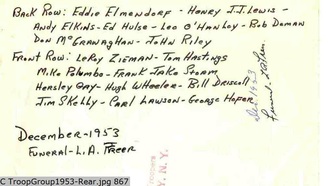 BACK ROW: EDDIE ELMENDORF - HENRY J.J. LEWIS -
ANDY ELKINS - ED HULSE - LEO O'HANLEY - BOB DOMAN
DON McGRANAGHAN - JOHN RILEY
FRONT ROW: LEROY ZIEMAN - TOM HASTINGS
MIKE PALUMBO - FRANK JAKE STORM
HENSLEY GAY - HUGH WHEELER - BILL DRISCOLL
JIM SKELLY - CARL LAWSON - GEORGE HOFER
Dec 1953
DECEMBER - 1953
FUNERAL - L.A.
N.Y.
C TroopGroup1953-Rear.jpg 867